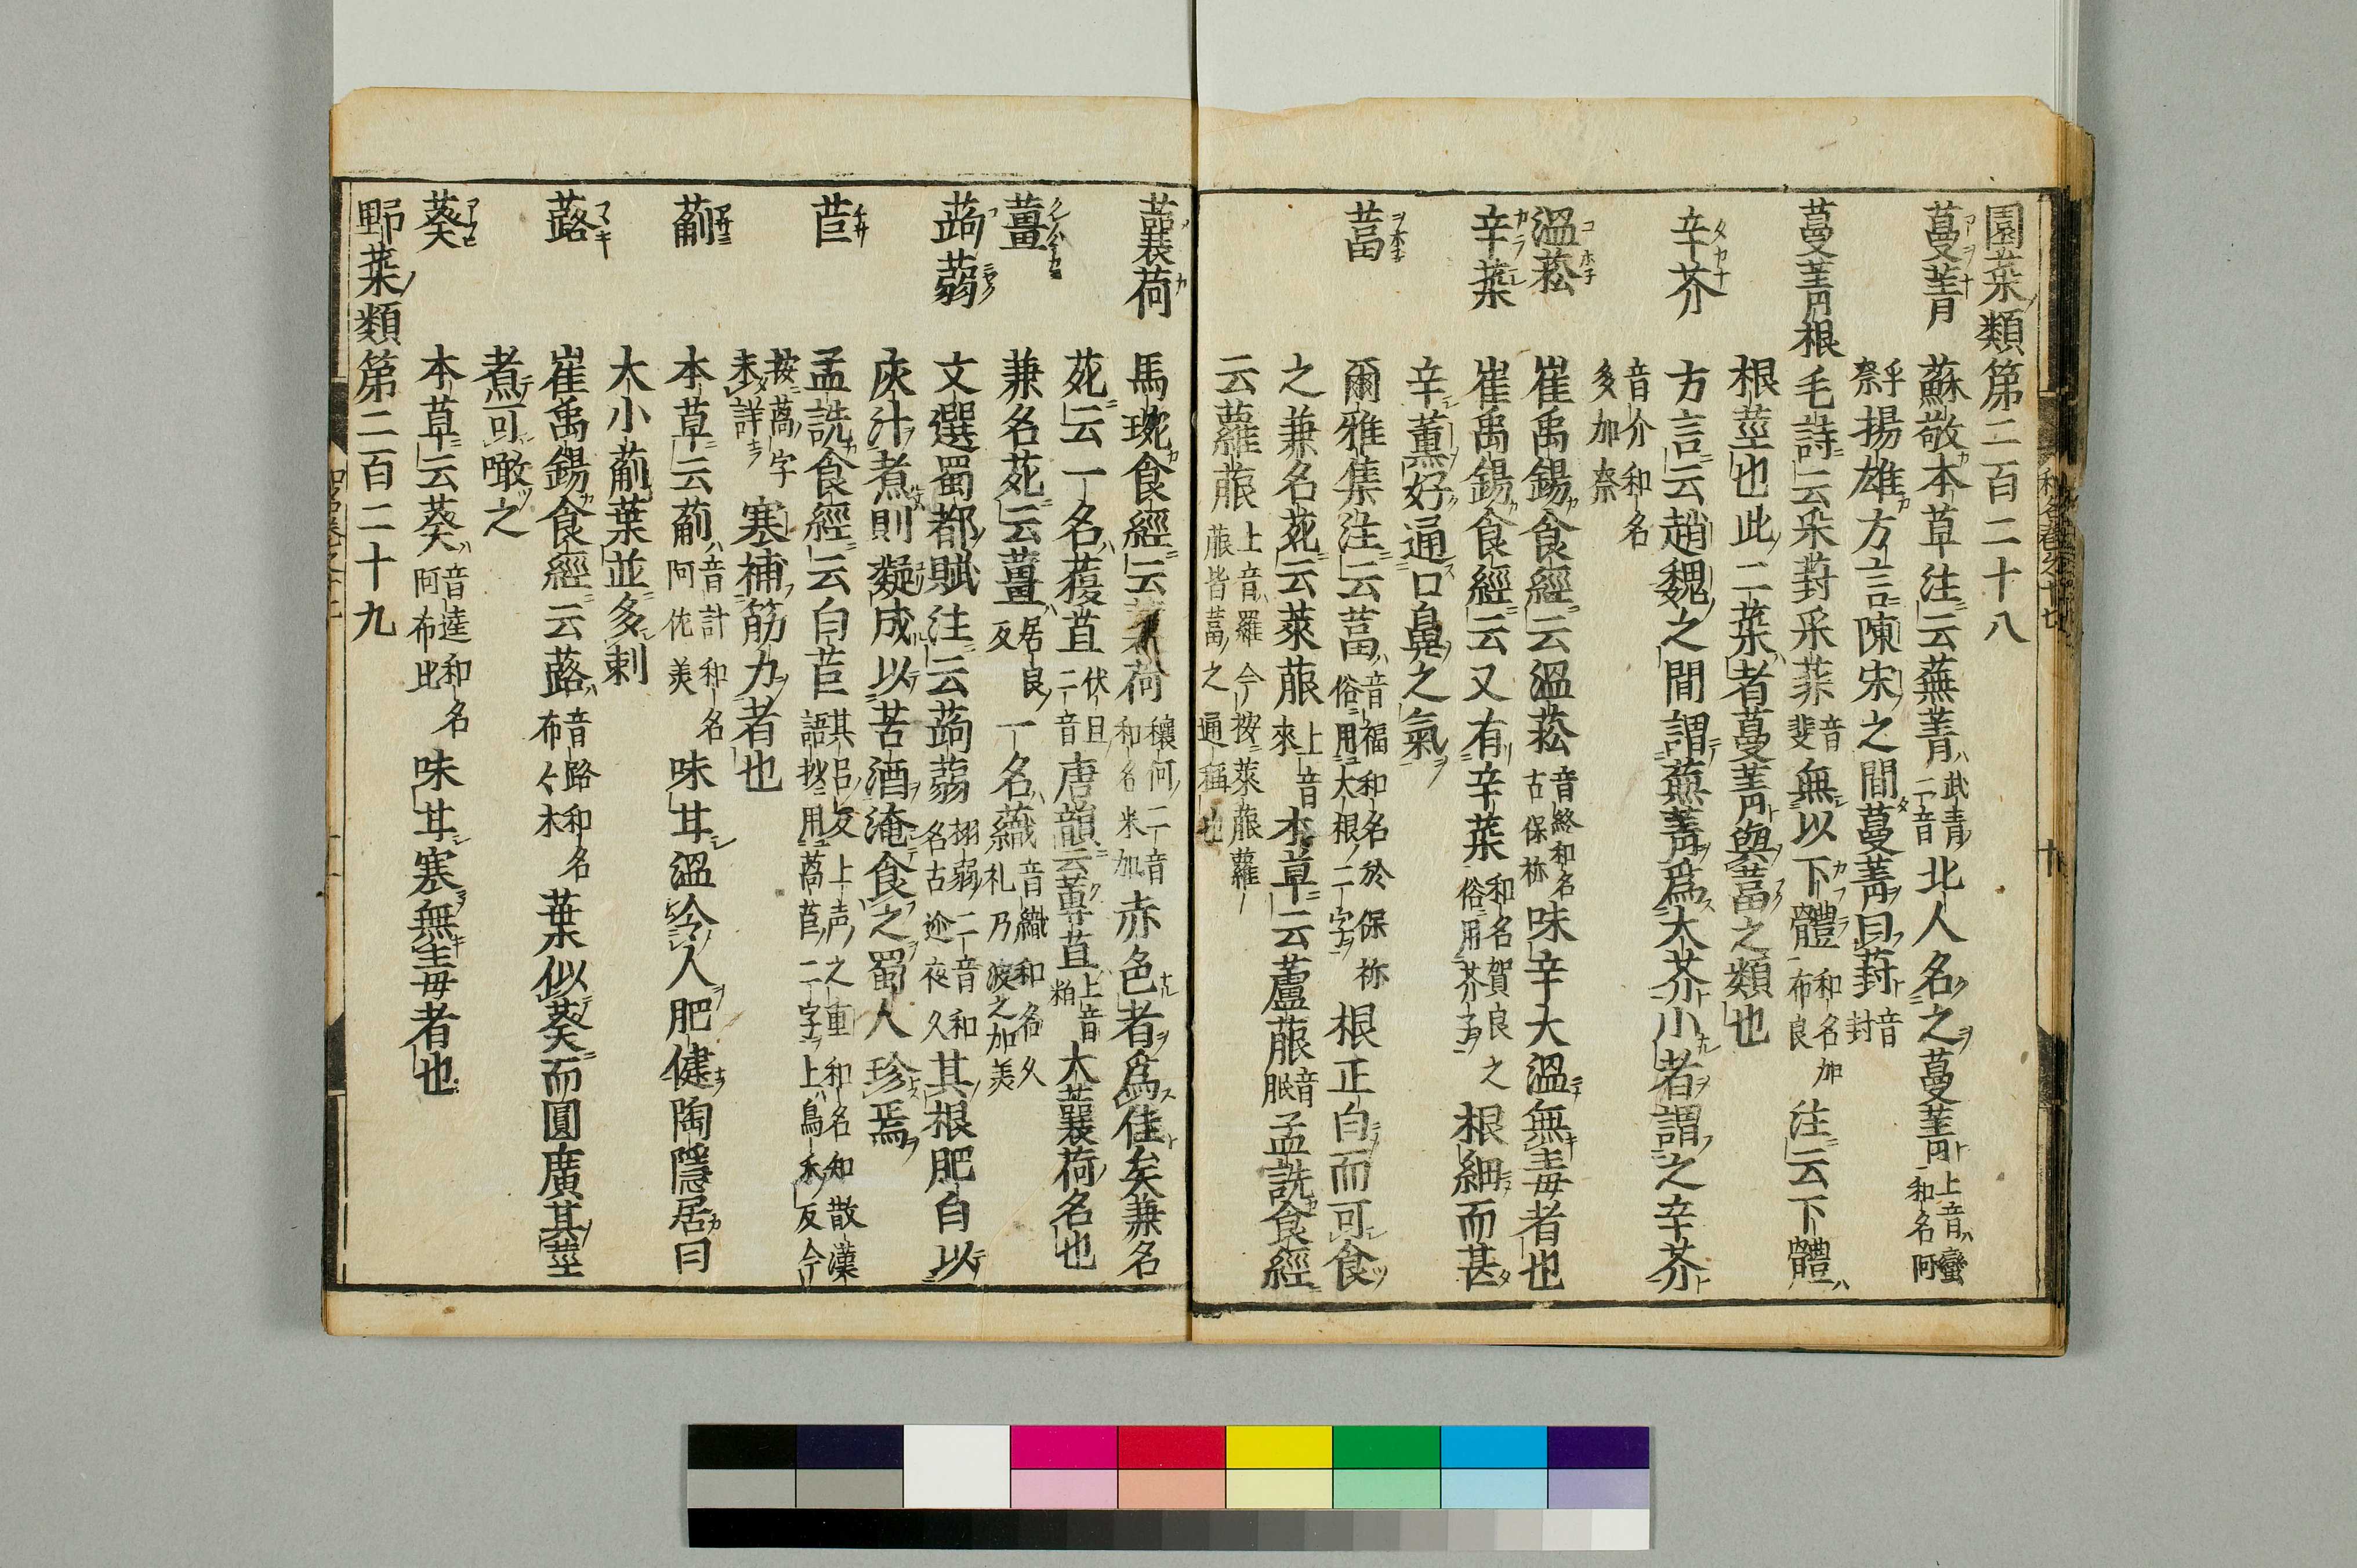 園菜類第二百二十八
蔓菁 蘇敬本草注云蕪菁武青二音北人名之蔓菁上音蠻和名阿
乎奈揚雄方言陳宋之間蔓菁曰葑音封
蔓菁根 毛詩云采葑采菲音斐無以下體和名加布良注云下體
根莖也此二菜者蔓菁與葍之類也
辛芥 方言云趙魏之間謂蕪菁爲大芥小者謂之辛芥
音介和名多加奈
溫菘 崔禹錫食經云溫菘音終和名古保祢味辛大溫無毒者也
辛菜 崔禹錫食經云又有辛菜和名賀良之俗用芥子根細而甚
辛薰好通口鼻之氣
葍 爾雅集注云葍音福和名於保祢俗用大根二字根正白而可食
之兼名苑云萊菔上音來本草云蘆菔音服孟詵食經
云蘿菔上音羅今按萊菔蘿菔皆葍之通稱也
蘘荷 馬琬食經云蘘荷穰何二音和名米加赤色者爲佳矣兼名
苑云一名蕧苴伏且二音唐韻云蓴苴上音粕大蘘荷名也
薑 兼名苑云薑居良反一名𧄕音織和名久礼乃波之加美
蒟蒻 文選蜀都賦注云蒟蒻栩弱二音和名古迩夜久其根肥白以
灰汁煮則凝成以苦酒淹食之蜀人珍焉
苣 孟詵食經云白苣其呂反上声之重和名知散漢語抄用萵苣二字上烏禾反今
按萵字未詳寒補筋力者也
薊 本草云薊音計和名阿佐美味甘溫令人肥健陶隱居曰
大小薊葉並多刺
蕗 崔禹錫食經云蕗音路和名布々木葉似葵而圓廣其莖
煮可噉之
葵 本草云葵音逵和名阿布比味甘寒無毒者也
野菜類第二百二十九